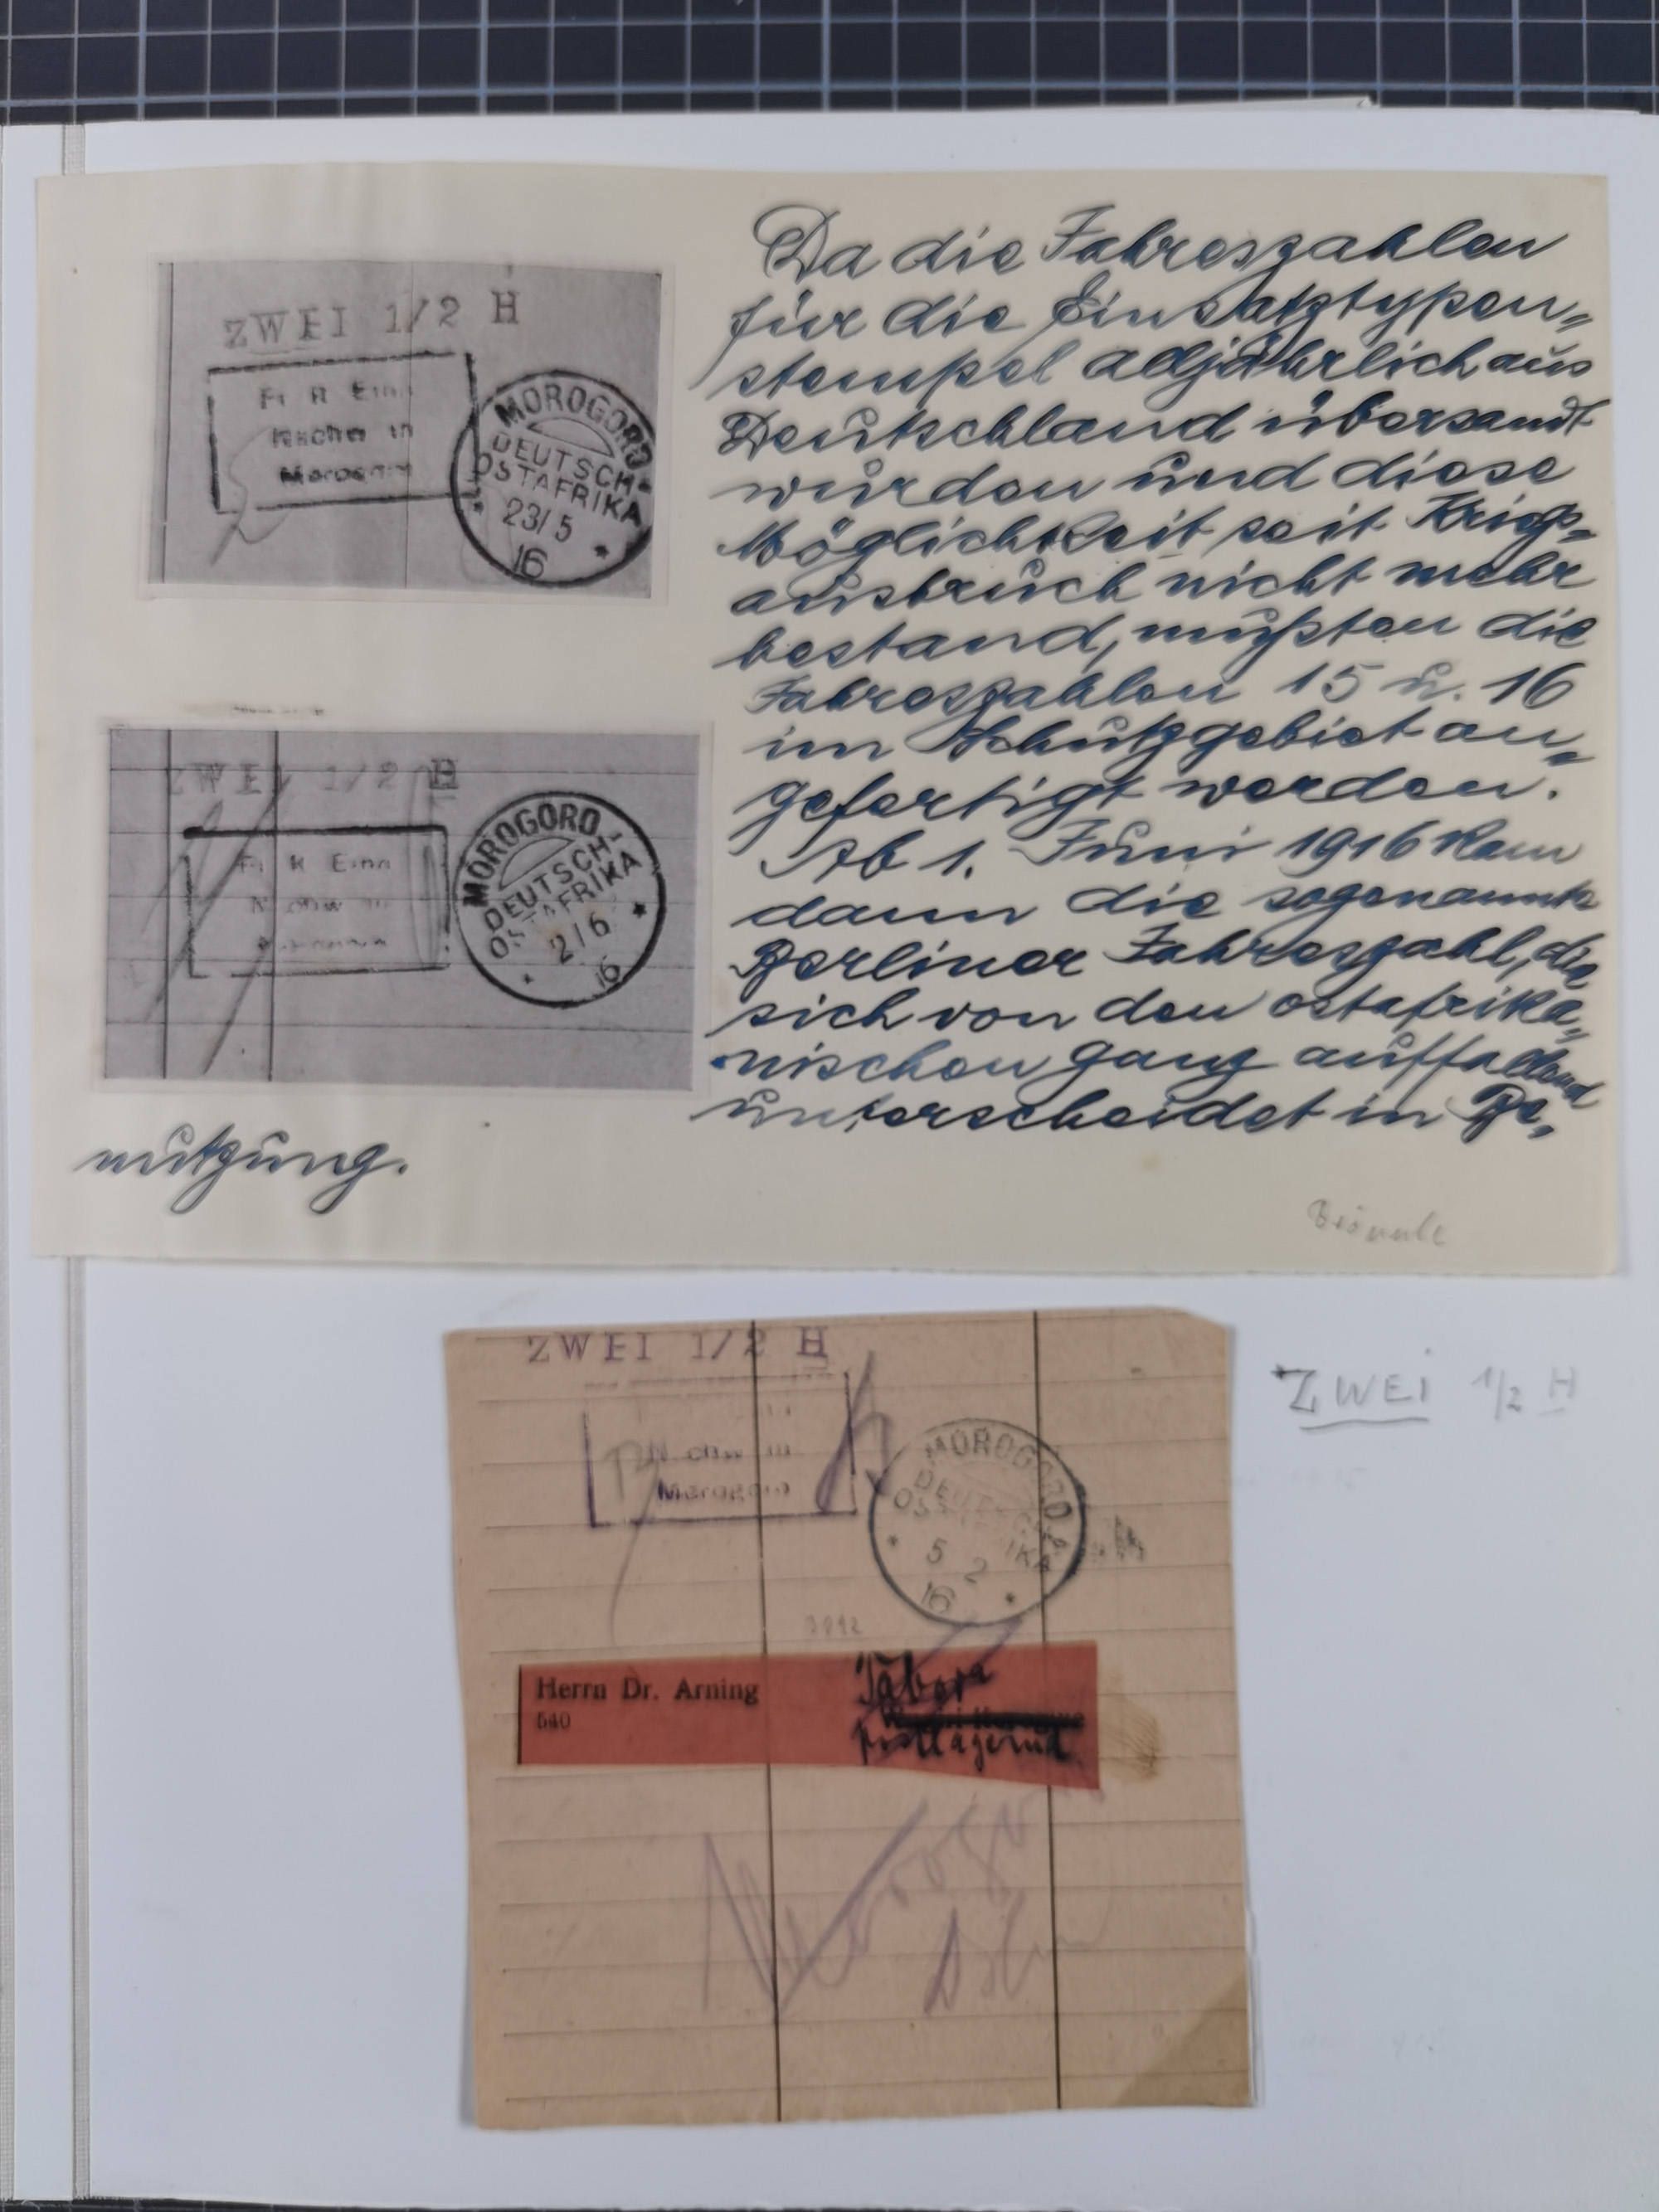 Da die Jahreszahlen
für die Einsatztypen=
stempel alljährlich aus
Deutschland übersandt
wurden und diese
Möglichkeit seit Kriegs=
ausbruch nicht mehr
bestand, mußten die
Jahreszahlen 15 u. 16
im Schutzgebiet an=
gefertigt werden.
Ab 1. Juni 1916 kam
dann die sogenannte
Berliner Jahreszahl, die
sich von den ostafrika=
nischen ganz auffallend
unterscheidet in Be=
nutzung.
ZWEI 1/2 H
Fr R
in
MOROGORO
DEUTSCH-
OSTAFRIKA
23/5
16
ZWEI 1/2 H
Fr R
MOROGORO
DEUTSCH-
OSTAFRIKA
2/6
16
ZWEI 1/2 H
Morogoro
MOROGORO
DEUTSCH-
OSTAFRIKA
5 2
16
ZWEI 1/2 H
Herrn Dr. Arning
540
Tabora
postlagernd